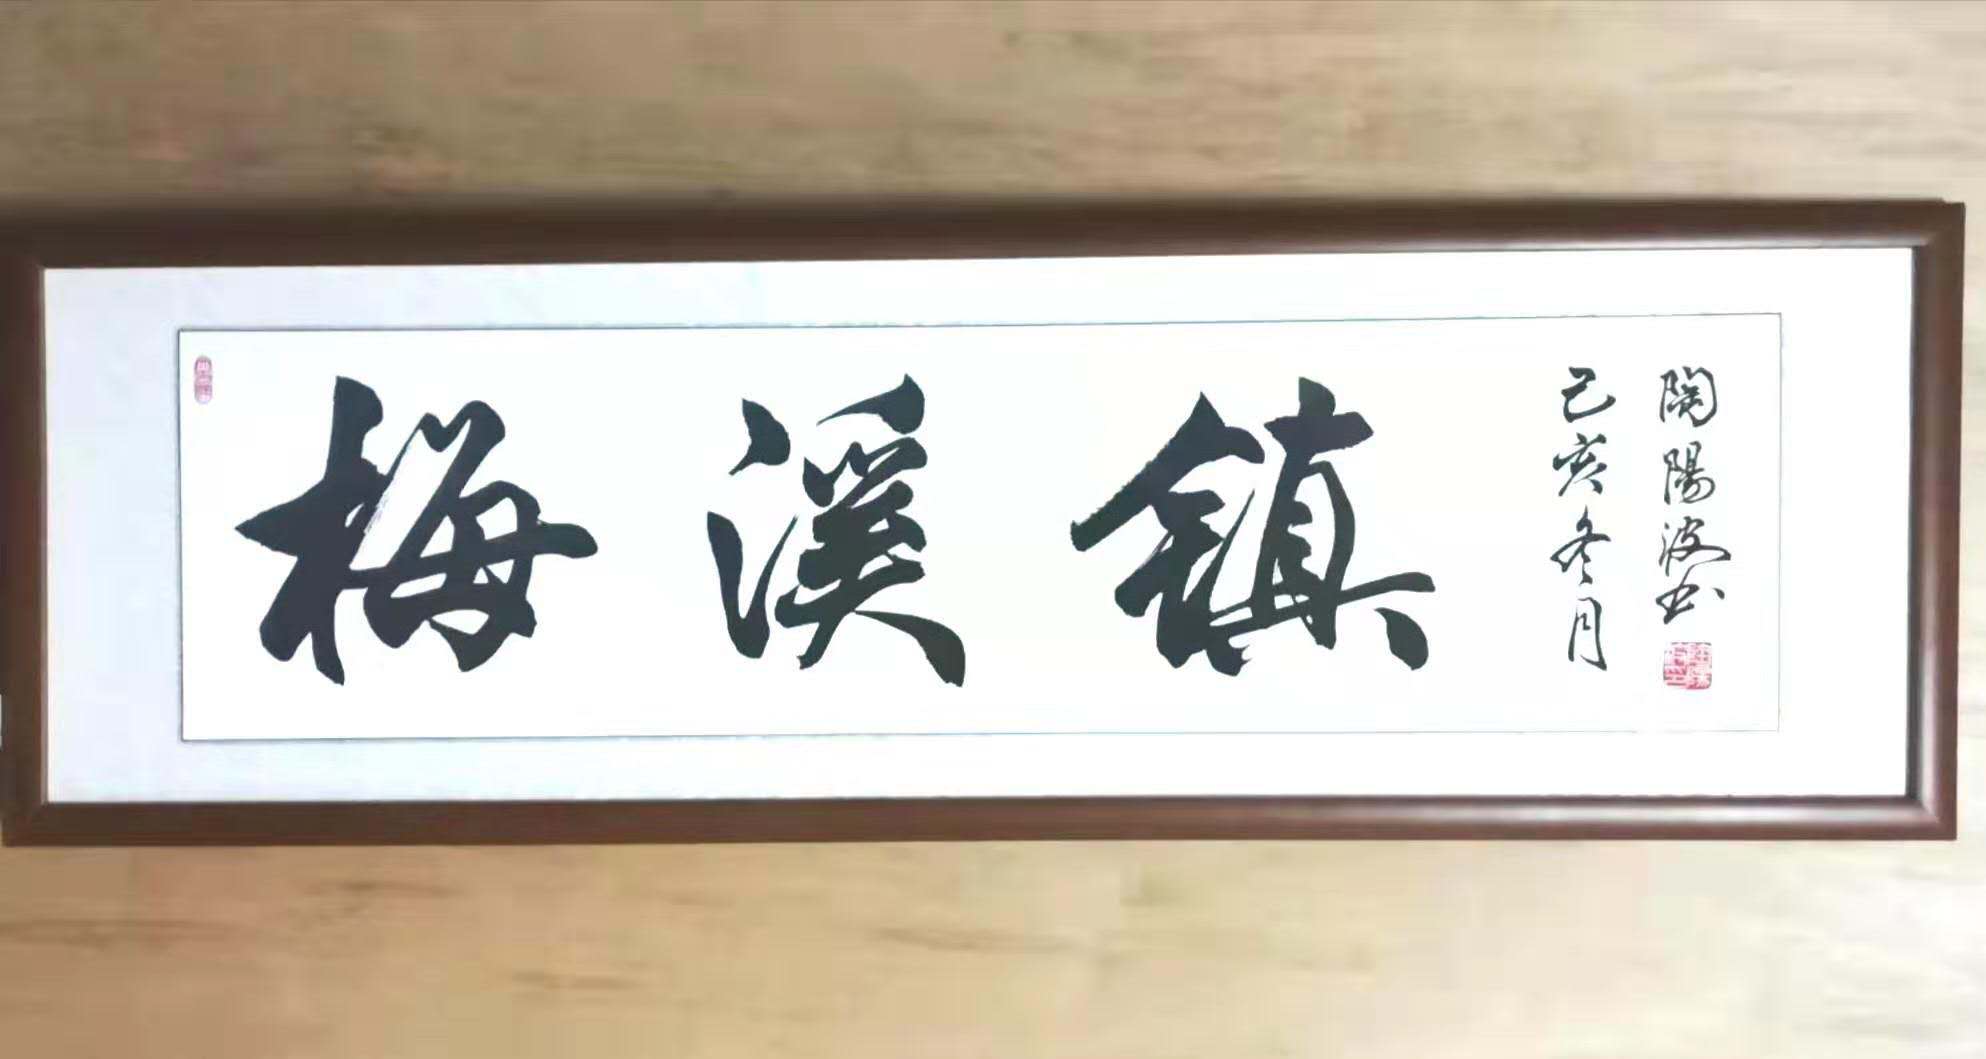 梅溪镇
己亥冬月
陶陽波书